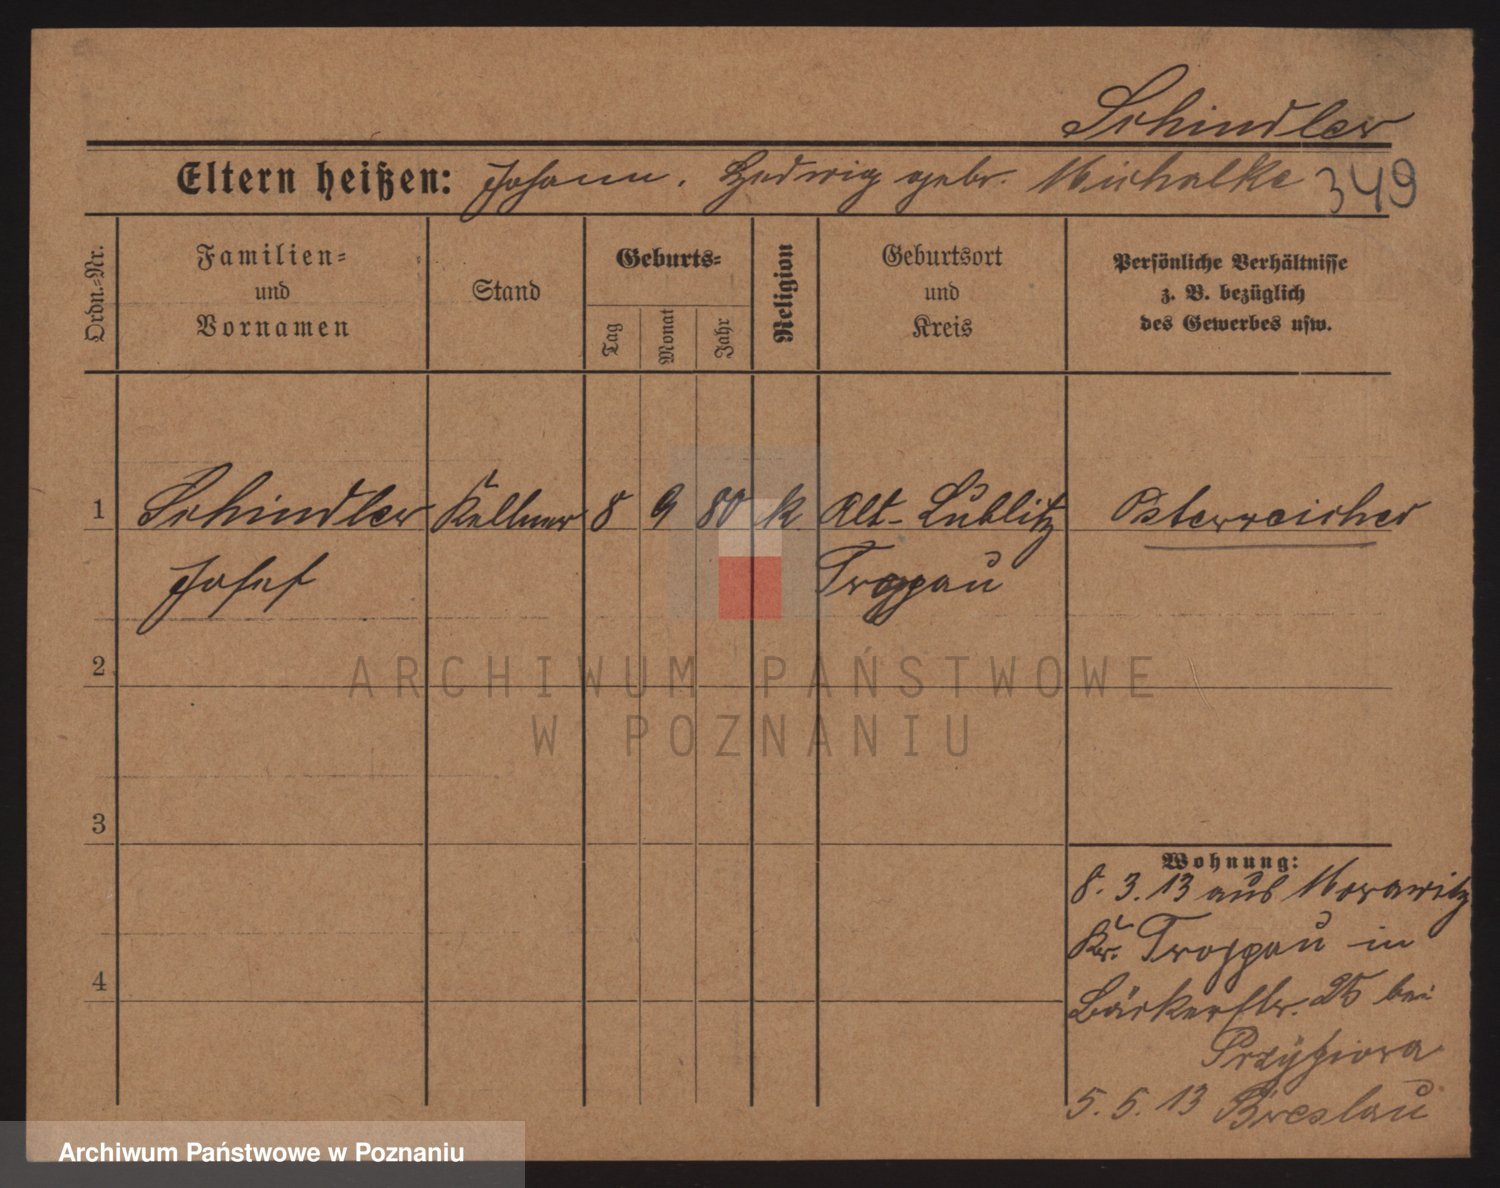 Schindler
Eltern heißen: Johann. Hedwig gebr. Michalke 349
Ordn.=Nr.
Familien=
und
Vornamen
Stand
Geburts=
Tag
Monat
Jahr
Religion
Geburtsort
und
Kreis
Persönliche Verhältnisse
z. B. bezüglich
des Gewerbes usw.
1 Schindler Kellner 8 9 80 k. Alt-Lublitz Österreicher
Josef Troppau
2
3
4
Wohnung:
8. 3. 13 aus Morawitz
Kr. Troppau in
Bäckerstr. 25 bei
5. 5. 13 Breslau
ARCHIWUM PAŃSTWOWE
W POZNANIU
Archiwum Państwowe w Poznaniu